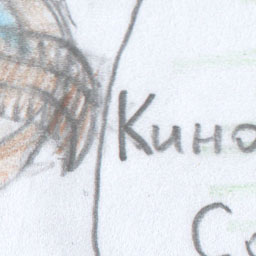 Кино
Со